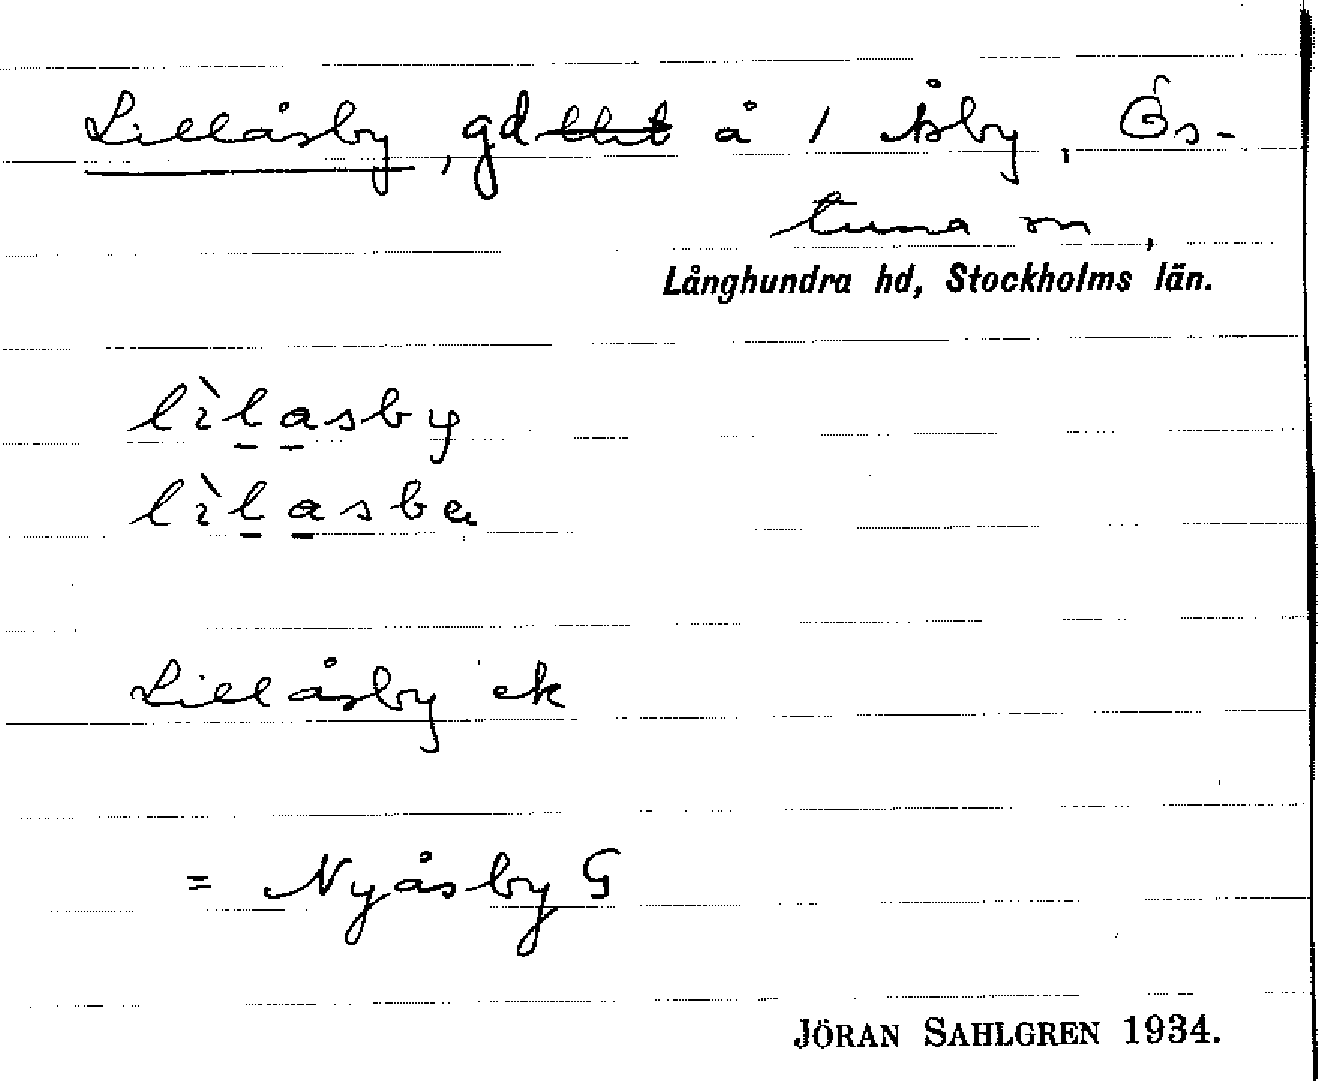 Lillåsby, gd å 1 Åsby, Ös-
tuna sn,
Långhundra hd, Stockholms län.
lìlasby
lìlasbα
Lillåsby ek
= Nyåsby G
JÖRAN SAHLGREN 1934.